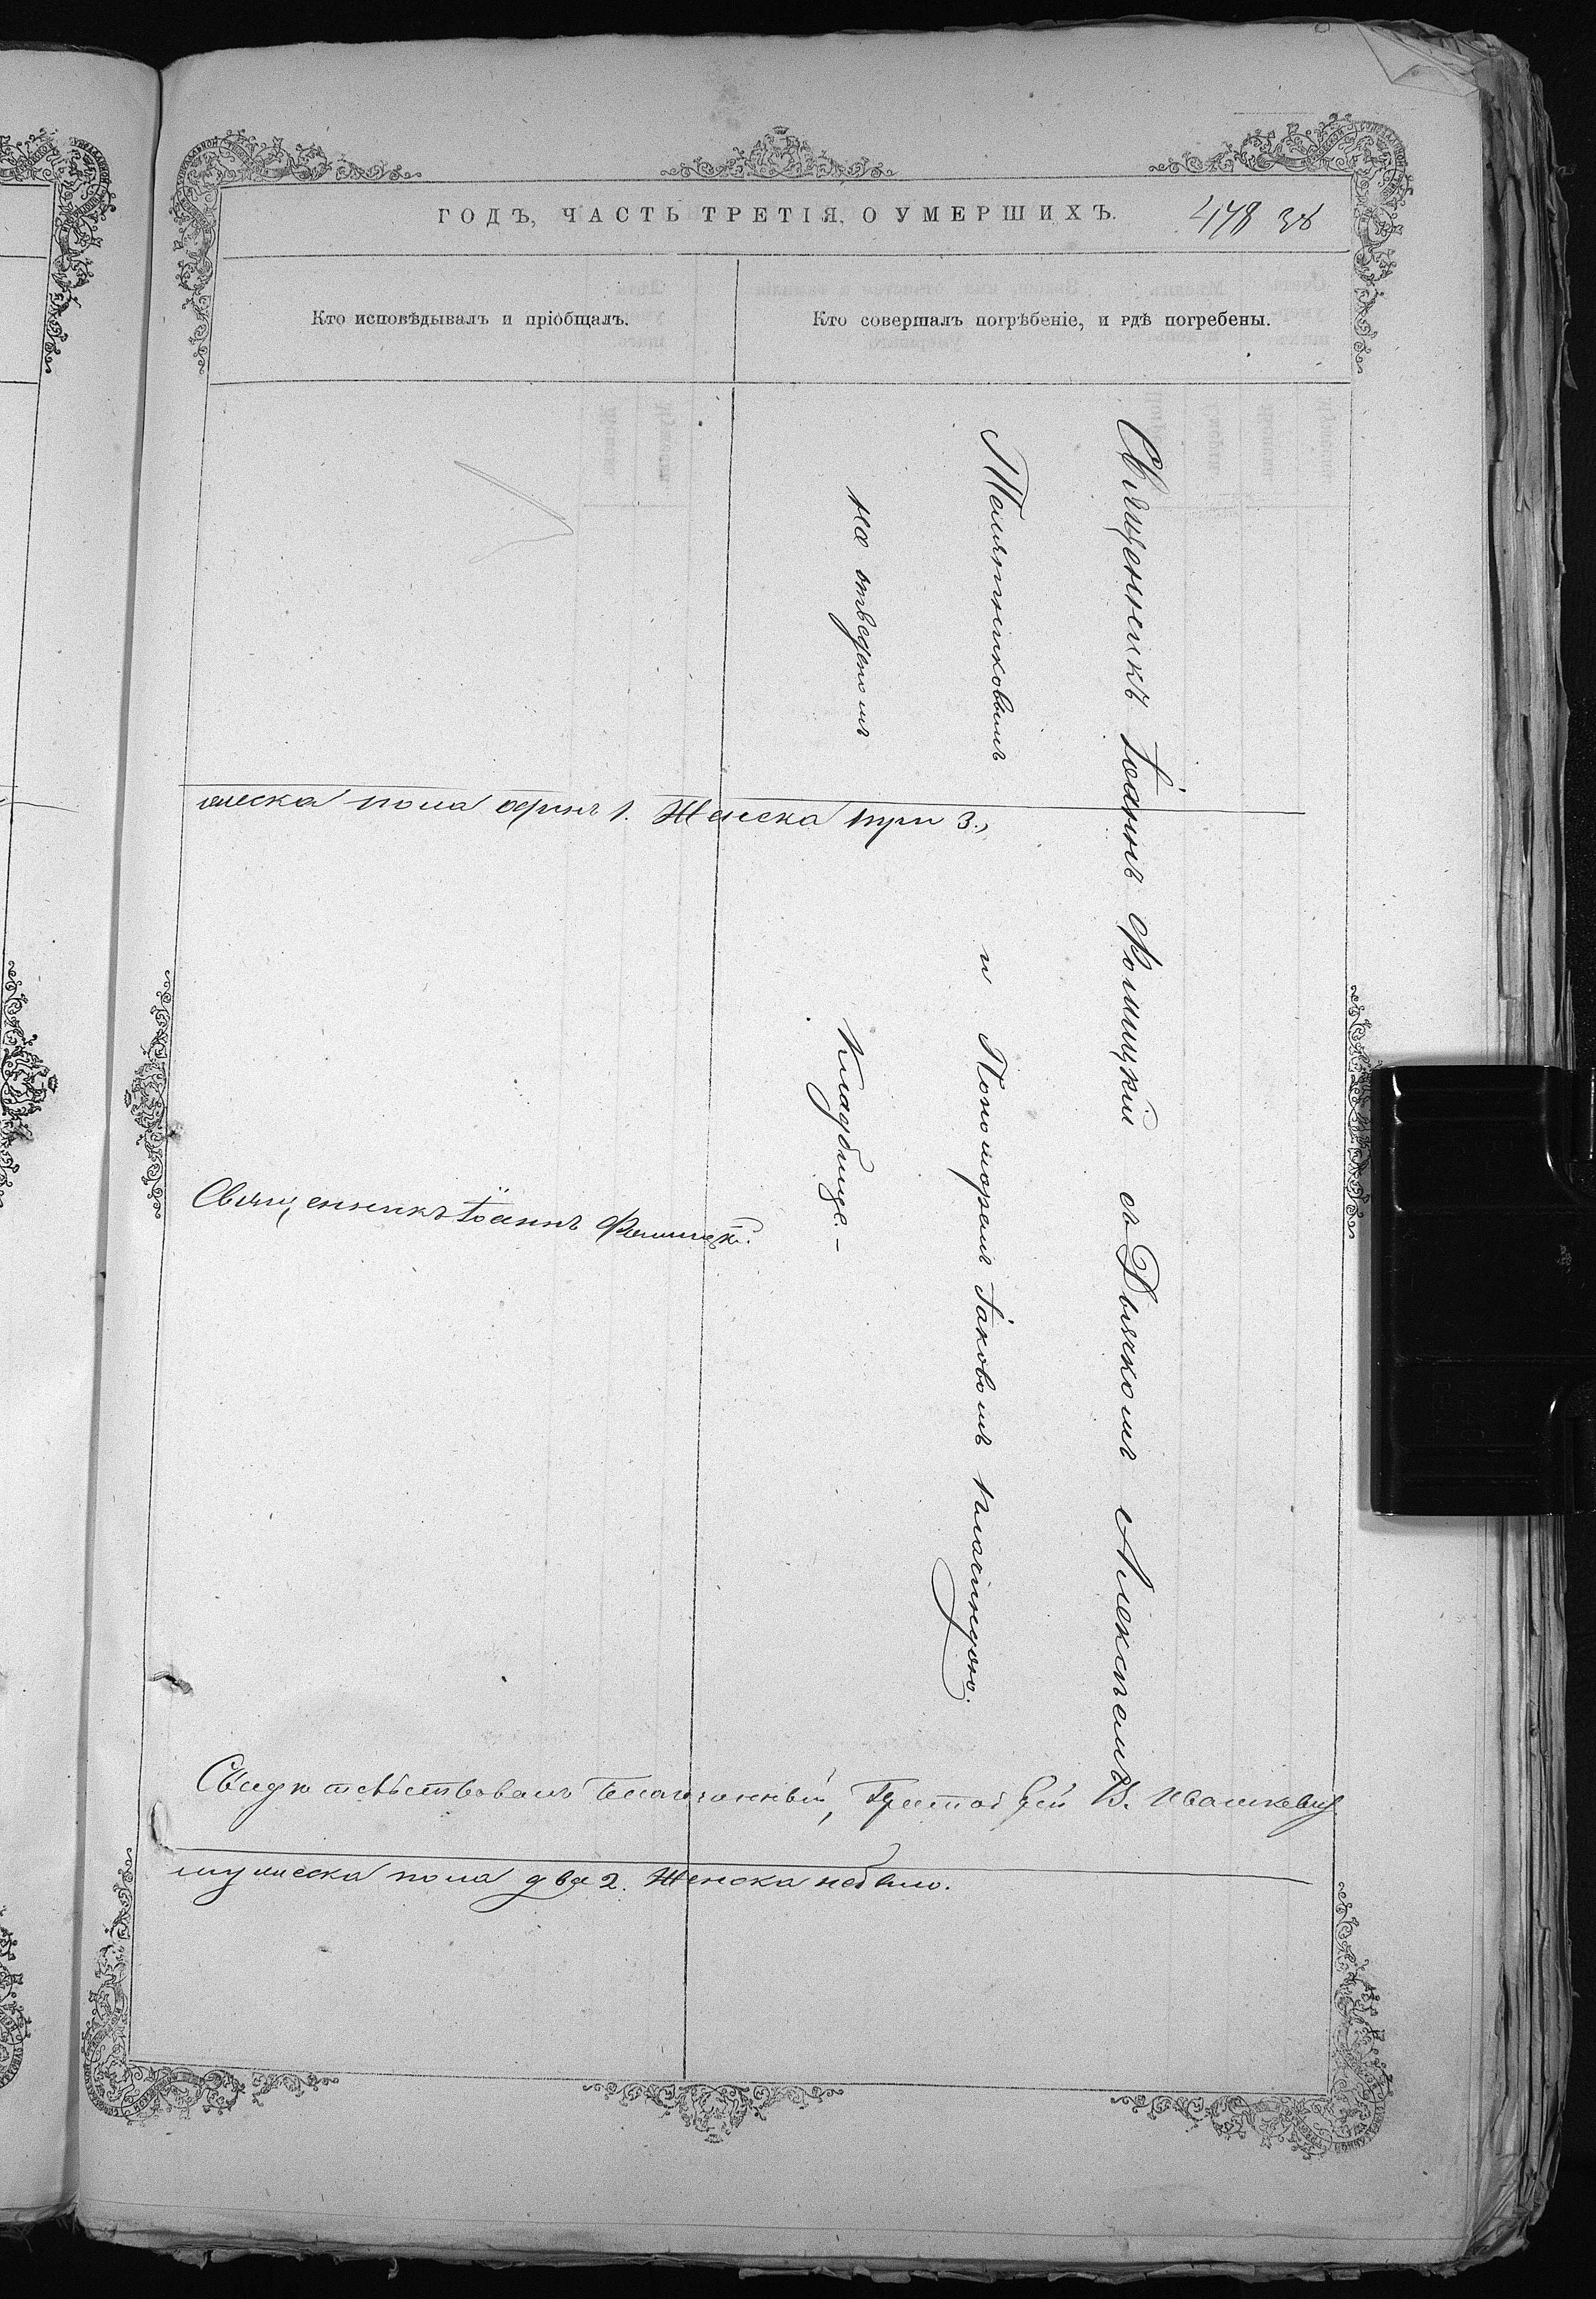 ГОДЪ, ЧАСТЬ ТРЕТІЯ, О УМЕРШИХЪ.
478 38
Кто исповѣдывалъ и пріобщалъ.
Кто совершалъ погрѣбеніе, и гдѣ погребены.
Священникъ Іоаннъ Фомицкій съ Дьячкомъ Алексѣемъ
и Пономоремъ Іаковомъ
на отведеномъ Кладбище. –
мужеска пола одинъ 1. Женска три 3.,
Священникъ Іоаннъ Фомицкій.
Свидѣтельствовалъ Благочинный, Протоіерей В. Ивашкевич
мужеска пола два 2. Женска небыло.